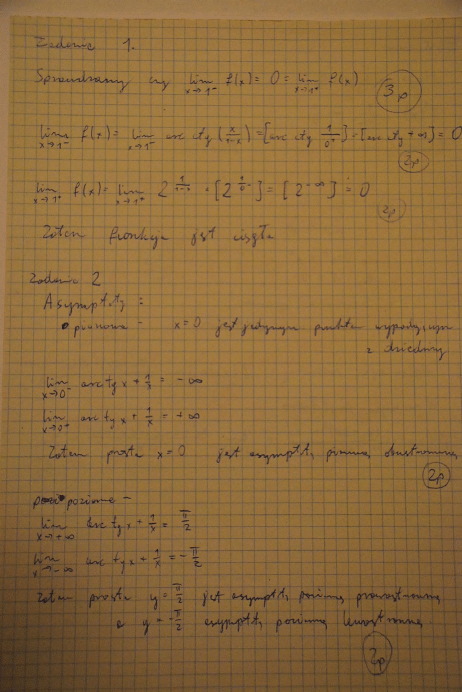 Zadanie 1.
Sprawdzamy czy lim x→1⁻ f(x) = 0 = lim x→1⁺ f(x)
3p
lim x→1⁻ f(x) = lim x→1⁻ arc ctg (x/(1-x)) = [arc ctg 1/0⁺] = [arc ctg +∞] = 0
2p
lim x→1⁺ f(x) = lim x→1⁺ 2^(1/(1-x)) = [2^(1/0⁻)] = [2^(-∞)] = 0
2p
Zatem funkcja jest ciągła
Zadanie 2
Asymptoty :
pionowa - x=0 jest jedynym punktem wypadającym
z dziedziny
lim x→0⁻ arc tg x + 1/x = -∞
lim x→0⁺ arc tg x + 1/x = +∞
Zatem prosta x=0 jest asymptotą pionową obustronną
2p
poziome -
lim x→+∞ arc tg x + 1/x = π/2
lim x→-∞ arc tg x + 1/x = -π/2
Zatem prosta y = π/2 jest asymptotą poziomą prawostronną
a y = -π/2 asymptotą poziomą lewostronną
2p